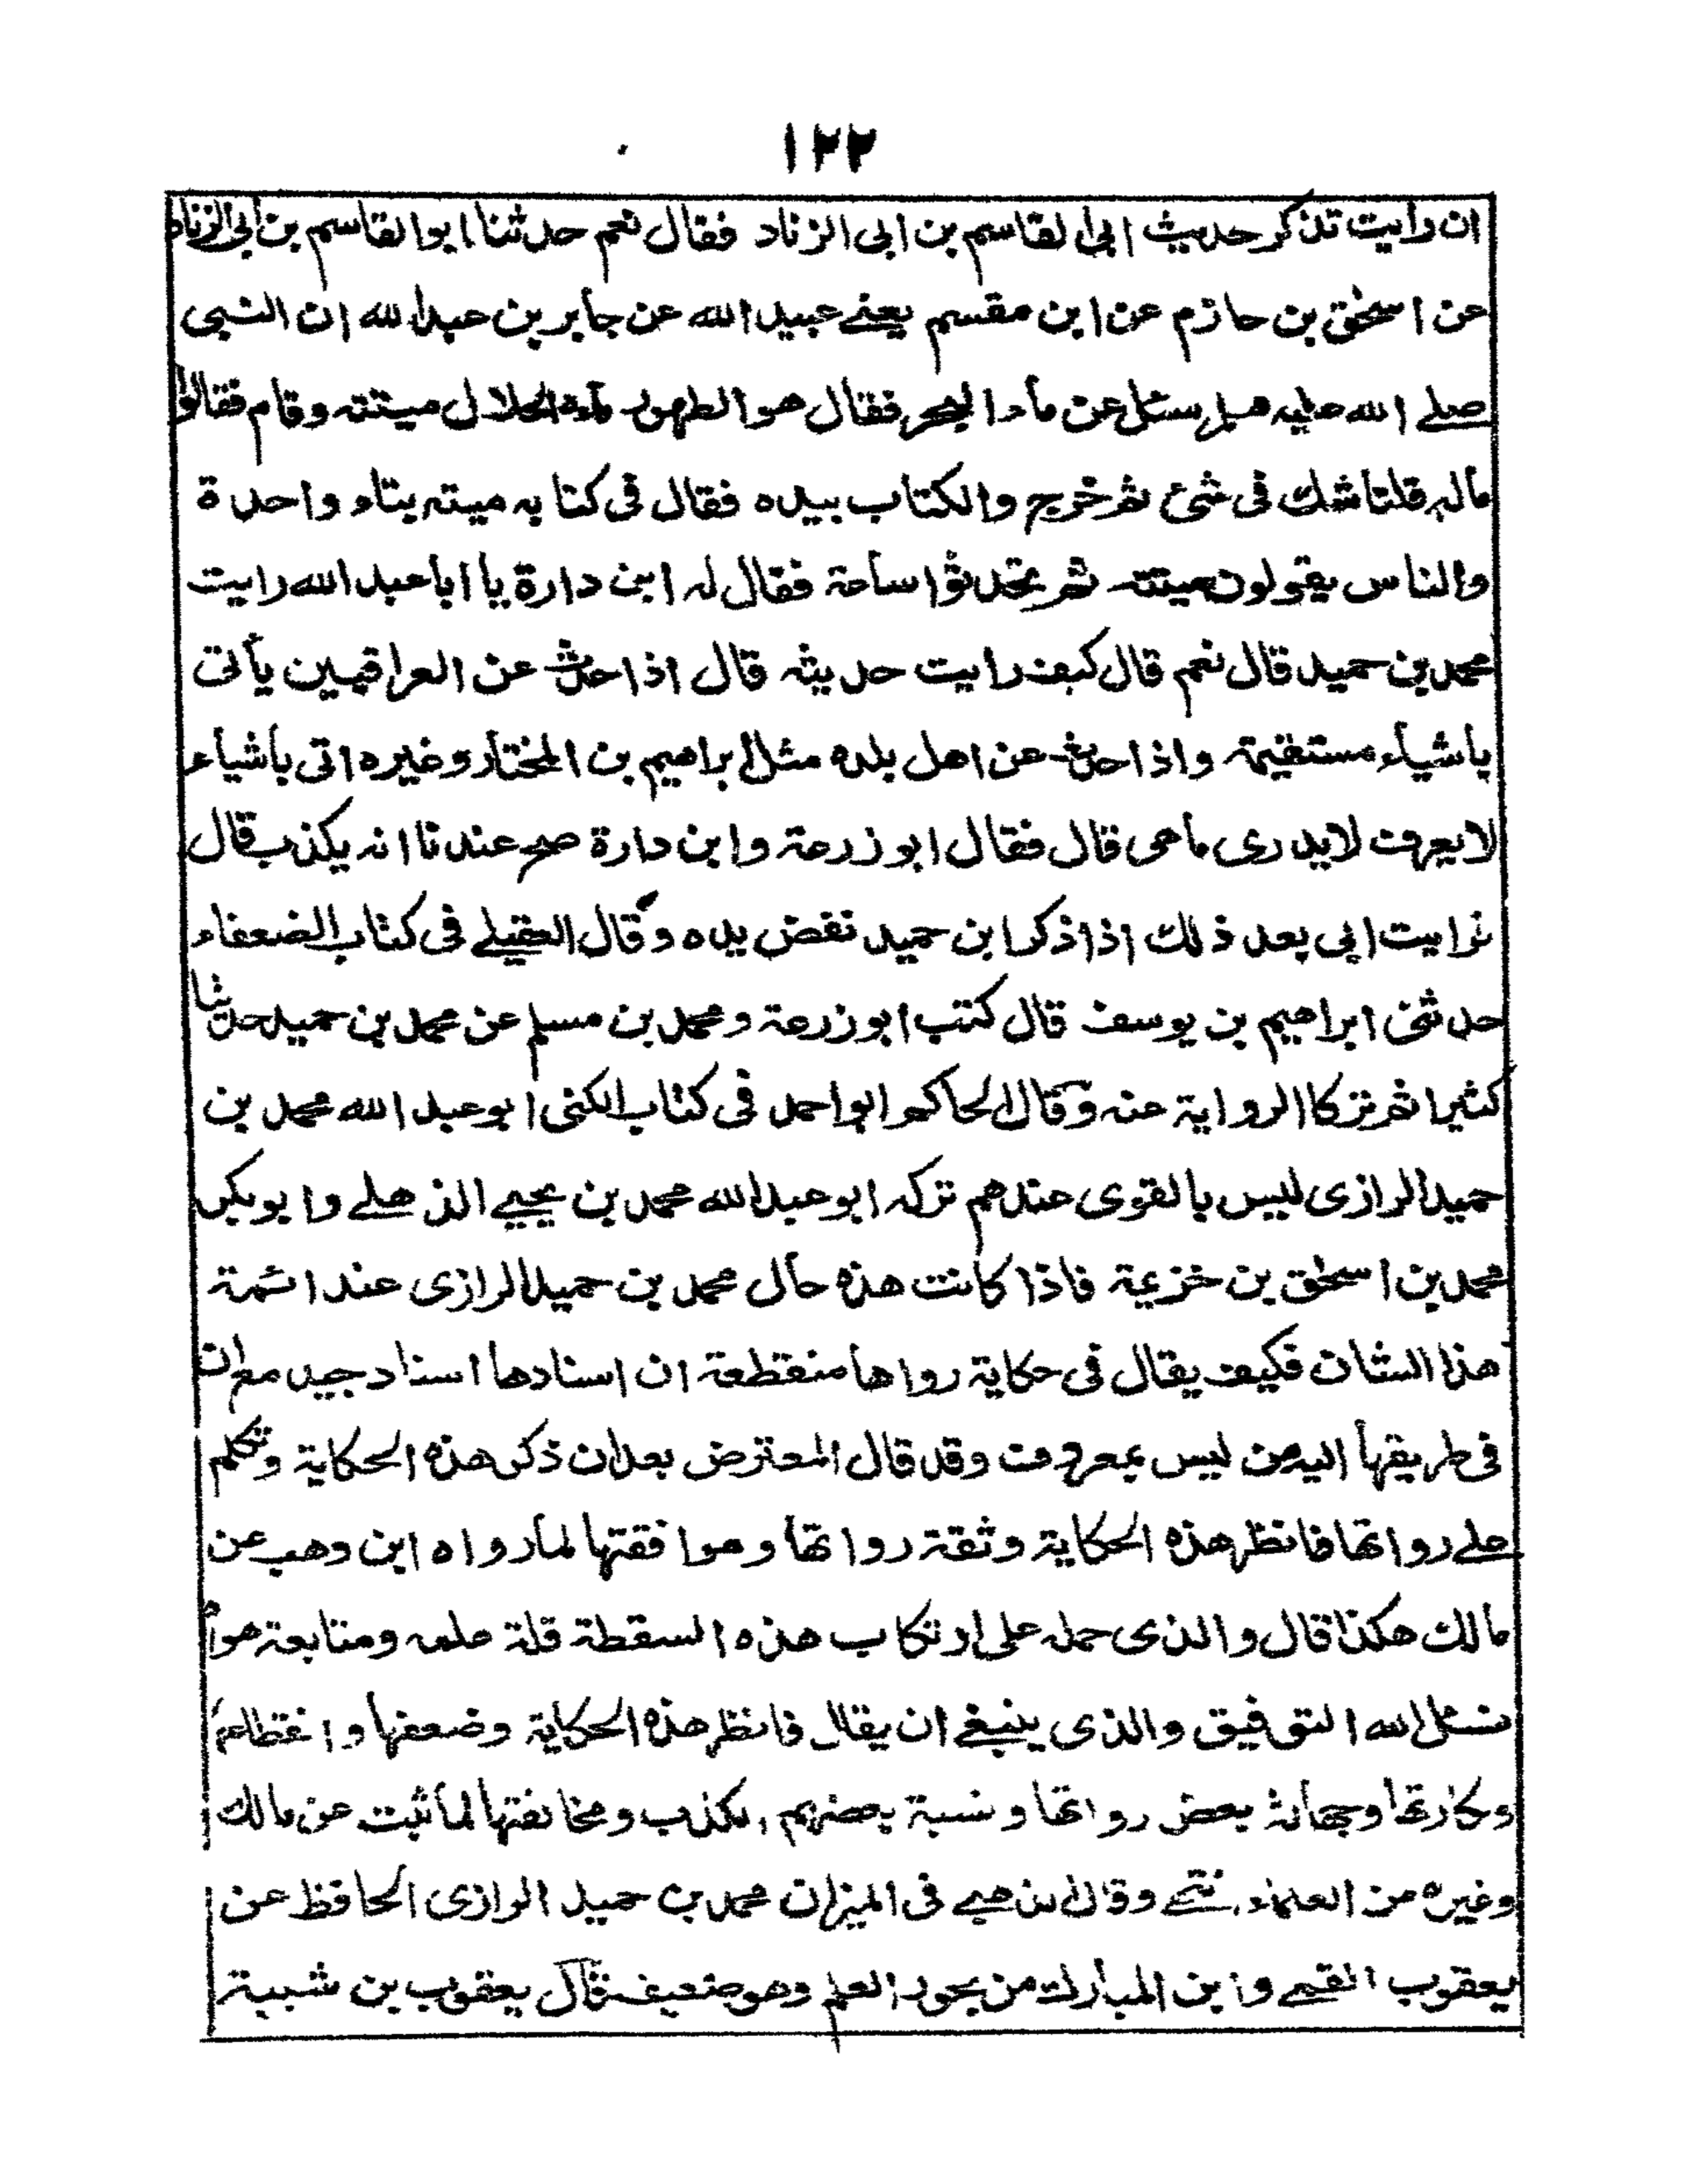 ١٢٢
ان رأيت تذكر حديث ابى القاسم بن ابى الزناد فقال نعم حدثنا ابو القاسم بن ابى الزناد
عن اسحٰق بن حازم عن ابن مقسم يعنے عبيد الله عن جابر بن عبد الله ان النبى
صلے الله عليه وسلم سئل عن ماء البحر فقال هو الطهور ماءه الحلال ميتته وقام فقالوا
ماله قلنا شك فى شئ ثم خرج والكتاب بيده فقال فى كتابه ميته بتاء واحدة
والناس يقولون ميتته ثم تحدثوا ساعة فقال له ابن دارة يا ابا عبد الله رايت
محمد بن حميد قال نعم قال كيف رأيت حديثه قال اذا حدث عن العراقيين يأتى
باشياء مستقيمة واذا حدث عن اهل بلده مثل ابراهيم بن المختار وغيره اتى باشياء
لا يعرف لايدرى ماهى قال فقال ابو زرعة وابن دارة صح عندنا انه يكذب قال
فرايت ابى بعد ذلك اذا ذكر ابن حميد نفض يده وقال العقيلے فى كتاب الضعفاء
حدثنى ابراهيم بن يوسف قال كتب ابو زرعة ومحمد بن مسلم عن محمد بن حميد حديثا
كثيرا ثم تركا الرواية عنه وقال الحاكم ابو احمد فى كتاب الكنى ابو عبد الله محمد بن
حميد الرازى ليس بالقوى عندهم تركه ابو عبد الله محمد بن يحيے الذهلے وابو بكر
محمد بن اسحٰق بن خزيمة فاذا كانت هذه حال محمد بن حميد الرازى عند ائمة
هذا الشان فكيف يقال فى حكاية رواها منقطعة ان اسنادها اسناد جيد مع ان
فى طريقها اليه من ليس بمعروف وقد قال المعترض بعد ان ذكر هذه الحكاية وتكلم
علے رواتها فانظر هذه الحكاية وثقة رواتها وموافقتها لما رواه ابن وهب عن
مالك هكذا قال والذى حمله على ارتكاب هذه السقطة قلة علمه ومتابعة هواه
نسئل الله التوفيق والذى ينبغے ان يقال فانظر هذه الحكاية وضعفها وانقطاعها
ونكارتها وجهالة بعض رواتها ونسبة بعضهم الكذب ومخالفتها لما ثبت عن مالك
وغيره من العلماء انتهے وقال الذهبے فى الميزان محمد بن حميد الرازى الحافظ عن
يعقوب القمے وابن المبارك من بحور العلم وهو ضعيف قال يعقوب بن شيبة